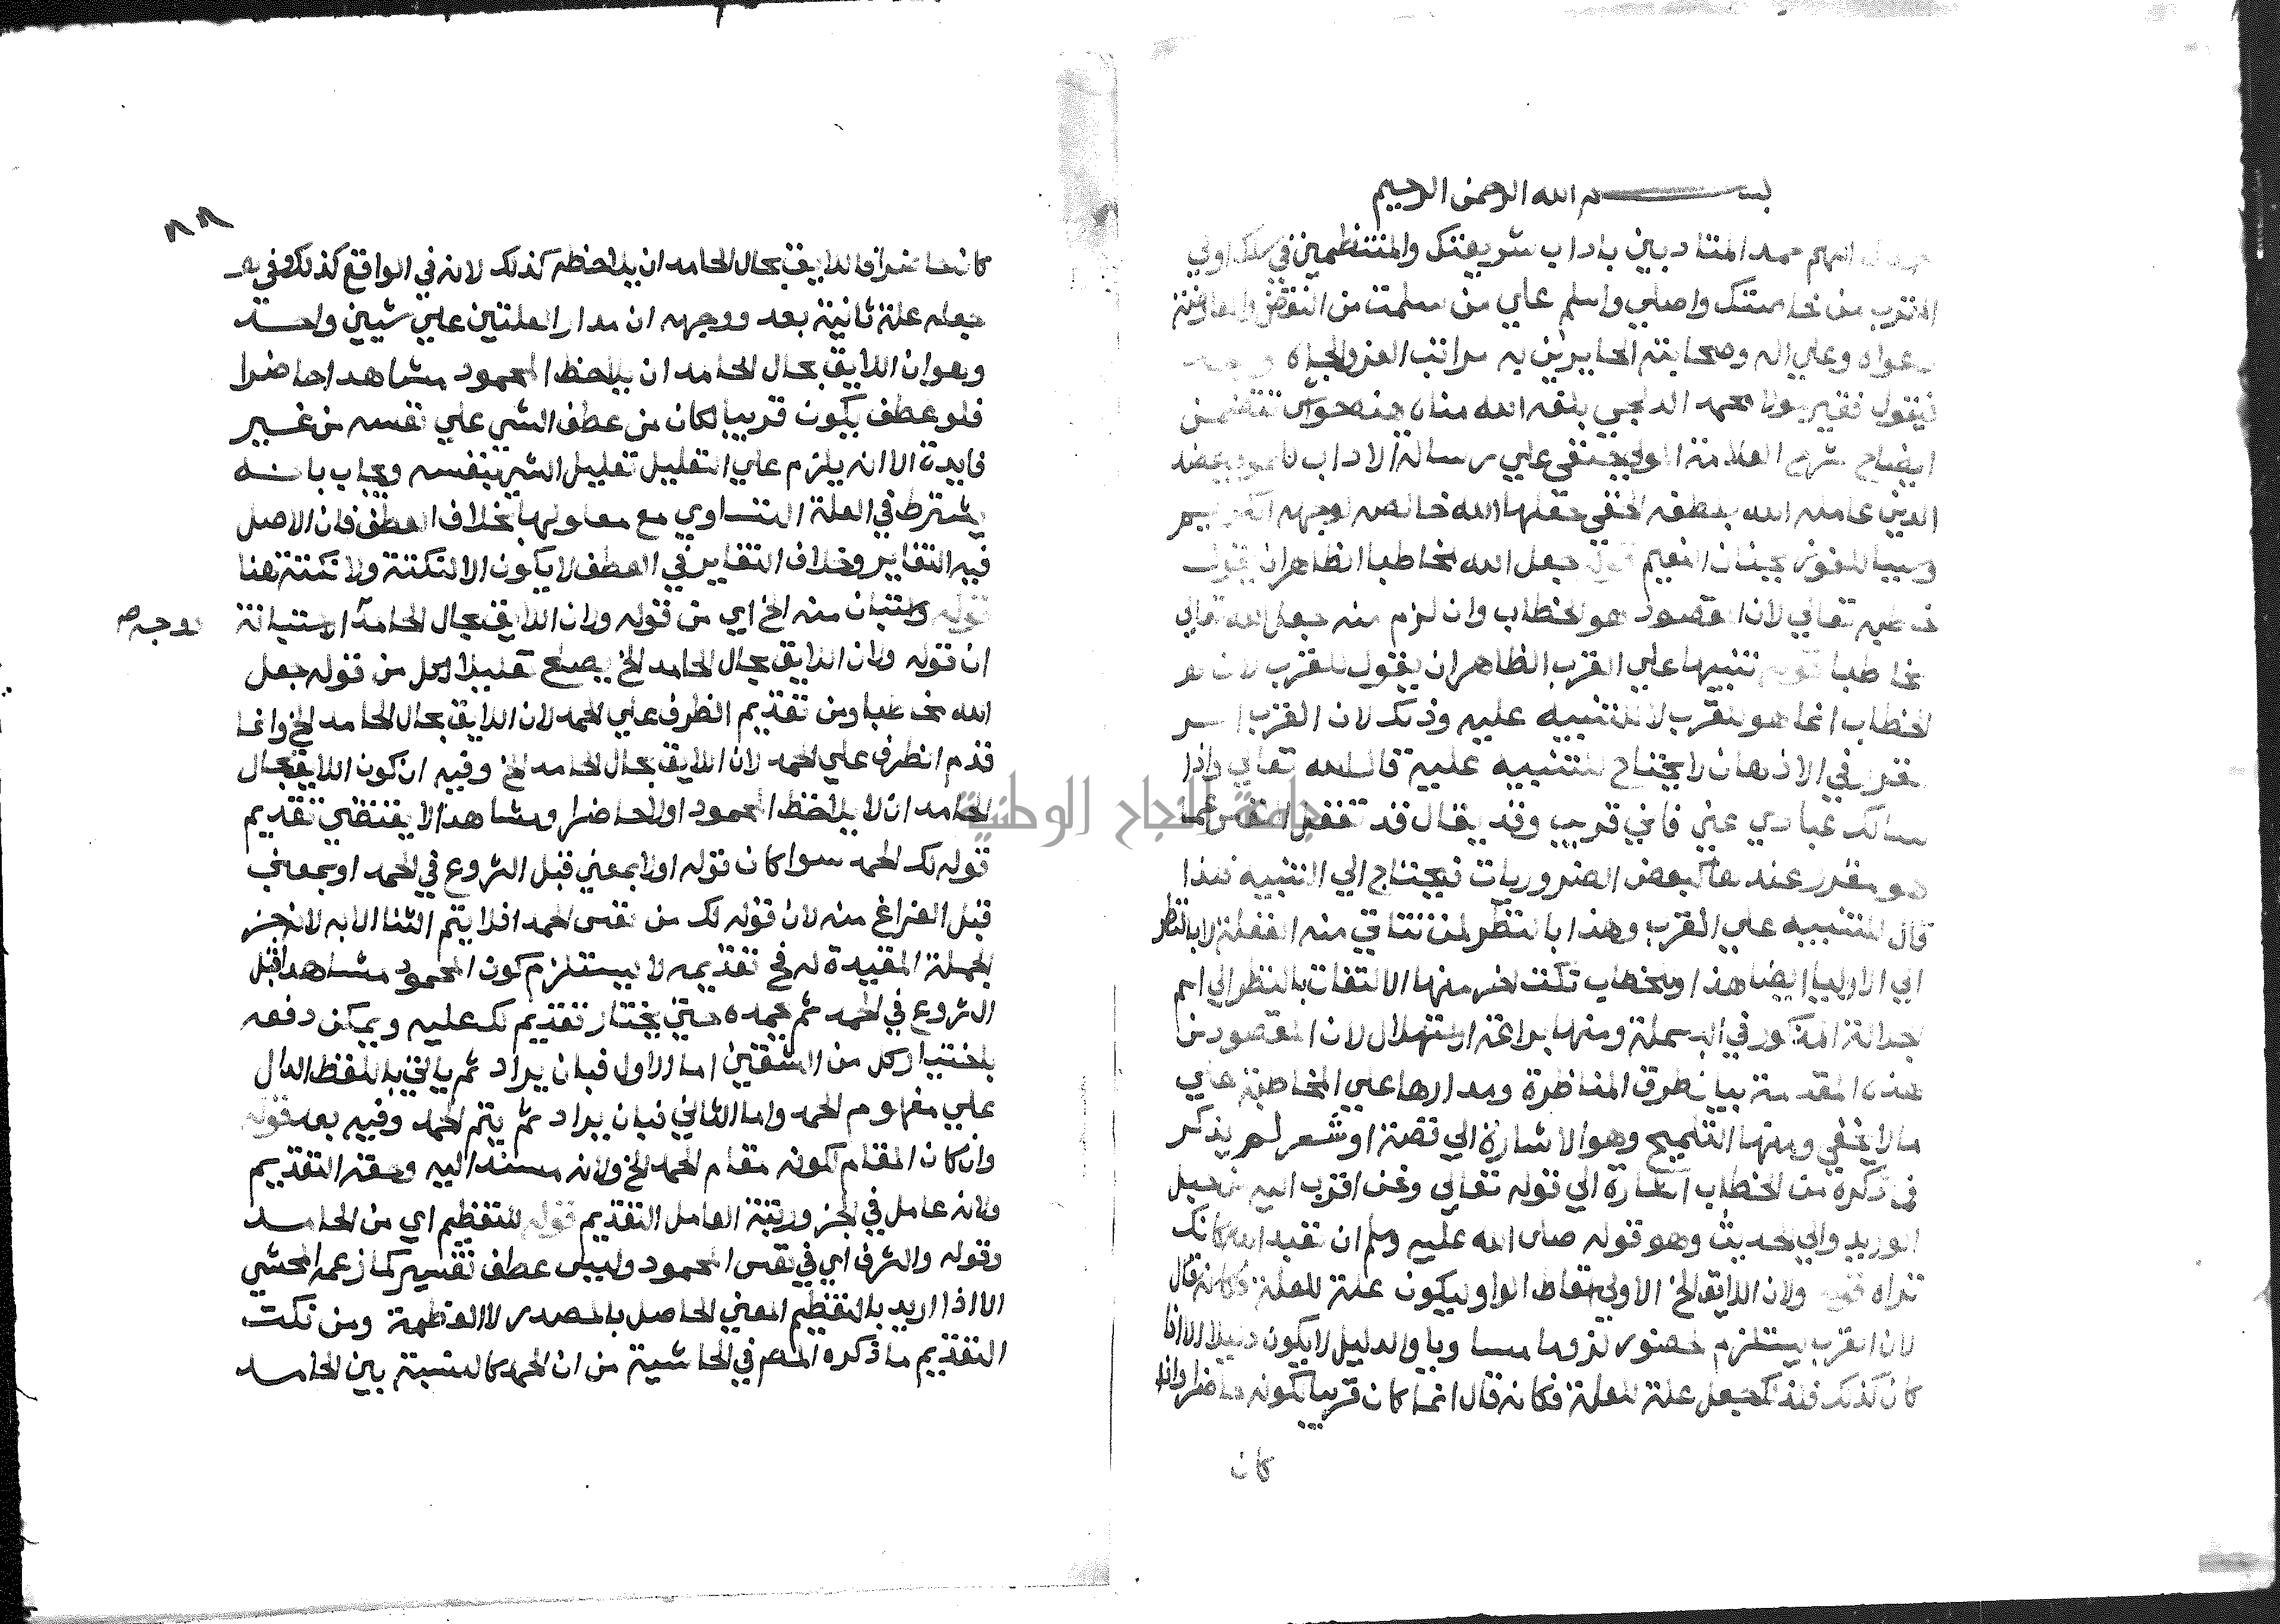 بسم الله الرحمن الرحيم
اللهم حمد المتادبين باداب شريعتك والمنتظمين في سلك اولي
القرب من خاصتك واصلي واسلم علي من سلمت من النقض والمعارضة
دعواه وعلي اله وصحابته الحايزين به مراتب العز والجاه
فيقول فقير مولاه محمد الدلجي بلغه الله مناه هذه حواش تتضمن
ايضاح شرح العلامة علي رسالة الاداب
الدين عامله الله بلطفه الخفي جعلها الله خالصة لوجهه الكريم
وسببا للفوز بجنات النعيم قوله جعل الله مخاطبا الظاهر ان يقول
خاطبه تعالي لان المقصود هو الخطاب وان لزم منه جعل الله تعالي
مخاطبا قوله تنبيها علي القرب الظاهر ان يقول للقرب لان
الخطاب انما هو للقرب لا للتنبيه عليه وذلك لان القرب امر
مقرر في الاذهان لا يحتاج للتنبيه عليه قال الله تعالي واذا
سالك عبادي عني فاني قريب وقد يقال قد تغفل النفس عما
هو مقرر عندها كبعض الضروريات فيحتاج الي التنبيه فلذا
قال للتنبيه علي القرب وهذا بالنظر لمن تتاتي منه الغفلة لا بالنظر
الي الاوليا ايضا هذا وللخطاب نكت اخر منها الالتفات بالنظر الي اسم
الجلالة المذكور في البسملة ومنها براعة استهلال لان المقصود من
هذه المقدمة بيان طرق المناظرة ومدارها علي المخاطبة علي
ما لا يخفي ومنها التلميح وهو الاشارة الي قصة او شعر لم يذكر
في ذكره من الخطاب اشارة الي قوله تعالي ونحن اقرب اليه من حبل
الوريد والي الحديث وهو قوله صلي الله عليه وسلم ان تعبد الله كانك
تراه قوله ولان اللايق الخ الاولي اسقاط الواو ليكون علة للعلة فكانه قال
لان القرب يستلزم الحضور لزوما مساويا والدليل لا يكون دليلا الا اذا
كان كذلك فلذلك جعل علة للعلة فكانه قال انما كان قريبا لكونه حاضرا واذا
كان
٨٨
كان حاضرا فاللايق بحال الحامد ان يلاحظه كذلك لانه في الواقع كذلك وفي
جعله علة ثانية بعد ووجهه ان مدار العلتين علي شيين واحد
وهو ان اللايق بحال الحامد ان يلاحظ المحمود مشاهدا حاضرا
فلو عطف بكون قريبا لكان من عطف الشي علي نفسه من غير
فايدة الا انه يلزم علي التعليل تعليل الشي بنفسه ويجاب بانه
يشترط في العلة التساوي مع معلولها بخلاف العطف فان الاصل
فيه التغاير وخلاف التغاير في العطف لا يكون الا لنكتة ولا نكتة هنا
قوله واستبان منه الخ اي من قوله ولان اللايق بحال الحامد استبانة
ووجه ص
ان قوله ولان اللايق بحال الحامد الخ يصلح تعليلا لكل من قوله جعل
الله مخاطبا ومن تقديم الظرف علي الحمد لان اللايق بحال الحامد الخ وانما
قدم الظرف علي الحمد لان اللايق بحال الحامد الخ وفيه ان كون اللايق بحال
الحامد ان لا يلاحظ المحمود اولا حاضرا ومشاهدا لا يقتضي تقديم
قوله لك الحمد سوا كان قوله اولا بمعني قبل الشروع في الحمد او بمعني
قبل الفراغ منه لان قوله لك من نفس الحمد اذ لا يتم الثنا الا به لانه جز
الجملة المفيدة له فح تقديمه لا يستلزم كون المحمود مشاهدا قبل
الشروع في الحمد ثم يحمده حتي يختار تقديم لك عليه ويمكن دفعه
باختيار كل من الشقين اما الاول فبان يراد ثم ياتي باللفظ الدال
علي مفهوم الحمد واما الثاني فبان يراد ثم يتم الحمد وفيه بعد قوله
وان كان المقام لكونه مقام الحمد الخ ولانه مسند اليه وحقه التقديم
ولانه عامل في الجز ورتبة العامل التقديم قوله للتعظيم اي من الحامد
وقوله والشرف اي في نفس المحمود وليس عطف تفسير كما زعمه المحشي
الا اذا اريد بالتعظيم المعني الحاصل بالمصدر لا العظمة ومن نكت
التقديم ما ذكره المص في الحاشية من ان الحمد كالنسبة بين الحامد
جامعة النجاح الوطنية